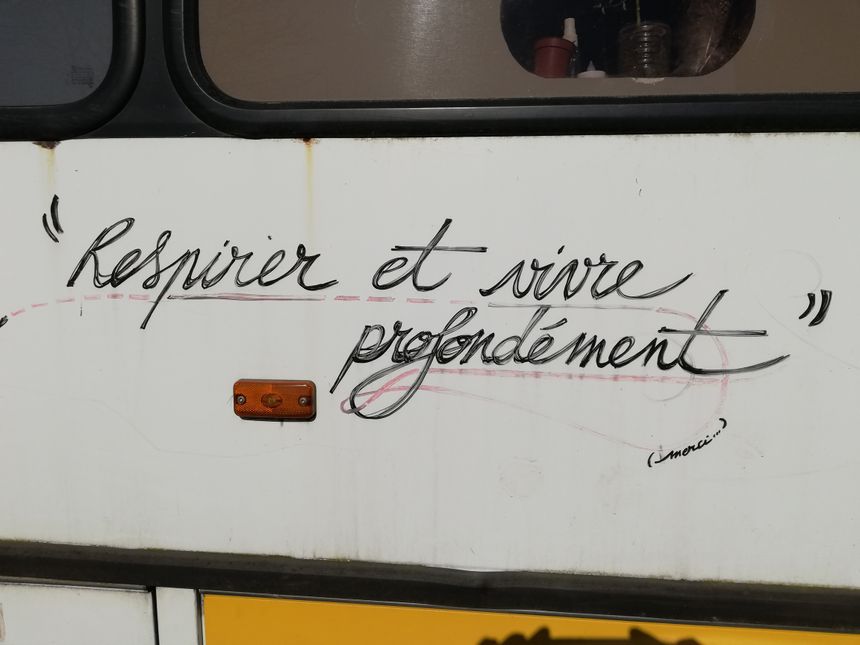 "Respirer et vivre
profondément"
(merci...)